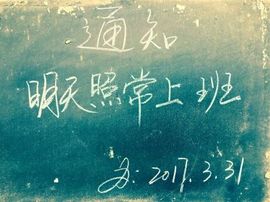 通知
明天照常上班
办:2017.3.31